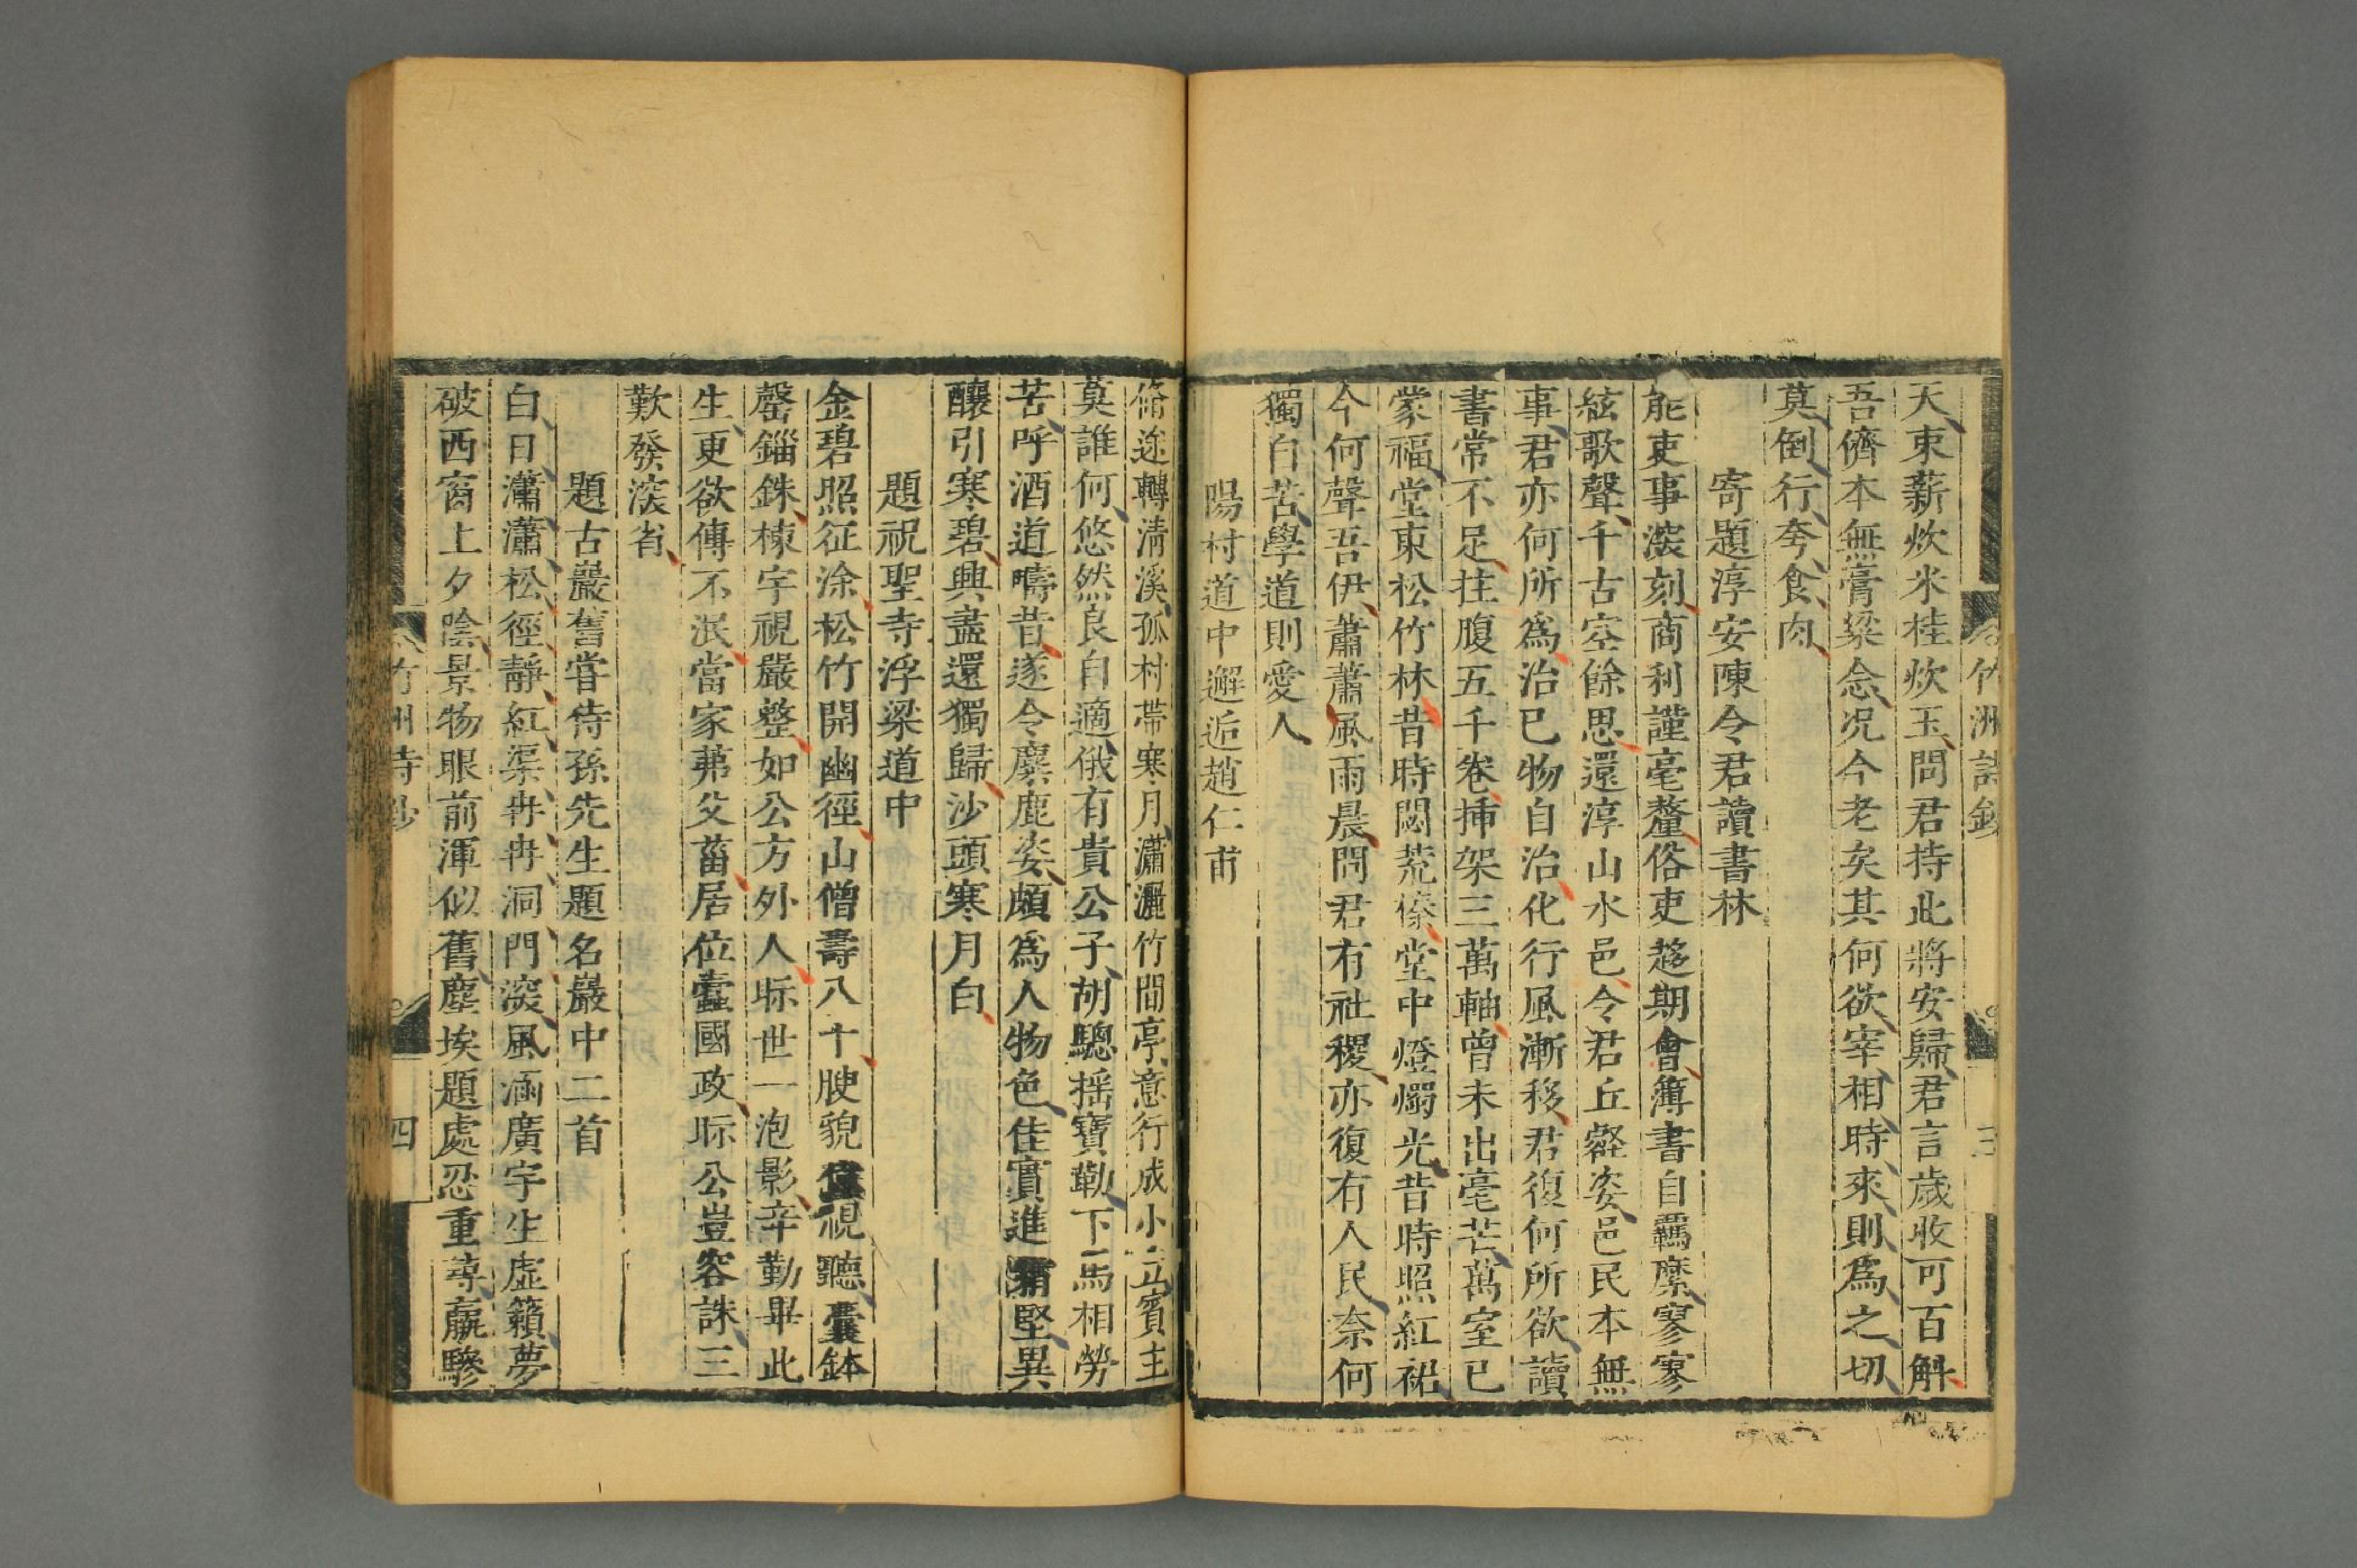 竹洲詩鈔 三
天束薪炊米桂炊玉問君持此將安歸君言歲收可百斛
吾儕本無膏粱念况今老矣其何欲宰相時來則爲之切
莫倒行夸食肉
寄題淳安陳令君讀書林
能吏事深刻商利謹毫釐俗吏趍期會簿書自羈縻寥寥
絃歌聲千古空餘思還淳山水邑令君丘壑姿邑民本無
事君亦何所爲治已物自治化行風漸移君復何所欲讀
書常不足拄腹五千卷揷架三萬軸曾未出毫芒萬室已
蒙福堂東松竹林昔時閟荒榛堂中燈燭光昔時照紅裙
今何聲吾伊蕭蕭風雨晨問君有社稷亦復有人民奈何
獨自苦學道則愛人
陽村道中邂逅趙仁甫
脩途轉清溪孤村帶寒月瀟灑竹間亭意行成小立賓主
莫誰何悠然良自適俄有貴公子胡驄揺寶勒下馬相勞
苦呼酒道疇昔遂令麋鹿姿頗爲人物色佳實進堅異
釀引寒碧興盡還獨歸沙頭寒月白
題祝聖寺浮梁道中
金碧照征涂松竹開幽徑山僧壽八十腴貌視聽囊鉢
罄錙銖棟宇視嚴整如公方外人眎世一泡影辛勤畢此
生更欲傳不泯當家弗父菑居位蠹國政眎公豈容誅三
歎發深省
題古巖舊甞侍孫先生題名巖中二首
白日瀟瀟松徑靜紅渠冉冉洞門深風涵廣宇生虛籟夢
破西窗上夕陰景物眼前渾似舊塵埃題處忍重尋羸驂
竹洲詩鈔 四